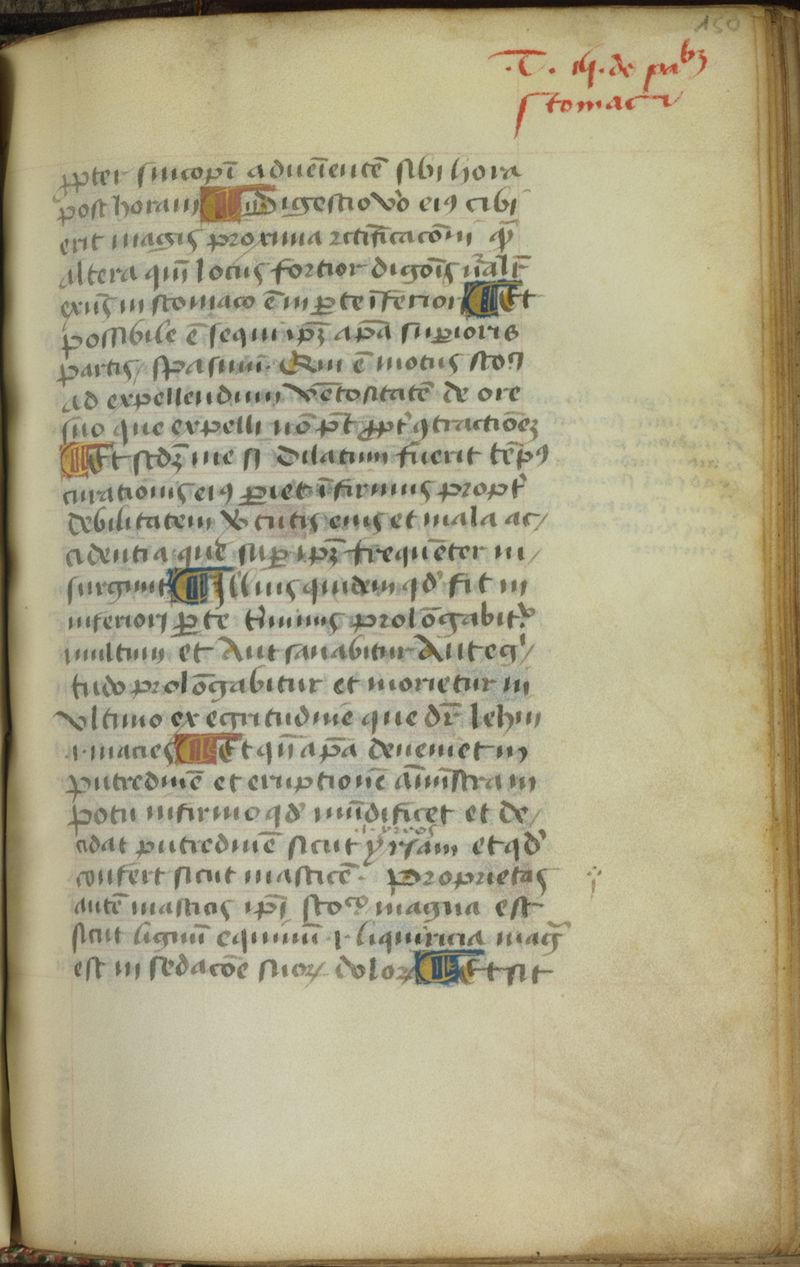 150
.T. iij. de pa bꝫ
stomaci
ꝓpter sincopī adueīentē sibi hora
post horam ¶ Digestio v̊o eiꝯ cibi
erit magis proxima rctificacōni q̄
altera qm̄ locus fortior digōis n̄alī
exn̄s in stomaco ē in ꝑte īferiori ¶ Et
possibile ē sequi ip̄ꝫ apā suꝑioris
partis spasmū. Qm̄ ē motus sto
ad expellendum vētositatē de ore
suo que expelli nō pt̄ ꝓpt̉ ꝯtractiōeꝫ
¶ Et sedꝫ me si dilatum fuerit tēpꝯ
curationis eiꝯ ꝑiet īfirmus propt̉
debilitatem v̊tutis eius et mala ac/
cidentia que suꝑ ip̄ꝫ frequēter in/
surgunt ¶ Illius quidem qd̉ fit in
inferiori ꝑte t̉minus prolōgabit̉
multum et Aut sanabitur Aut eg̉/
tudo prolōgabitur et morietur in
vltimo ex egritudine que dr̄ lehin
.i. macies ¶ Et qn̄ apā deueniet in
putredinē et eruptionē am̄istra in
potu infirmo qd̉ mūdificet et de/
.i. yreos
cidat putredinē sicut yrsam et qd̉
confert sicut masticē. Proprietas
autē masticis ip̄i sto magna est
sicut lignū equinum .i. liquiricia mag̉
est in sedacōe suoꝝ doloꝝ ¶ Et sit